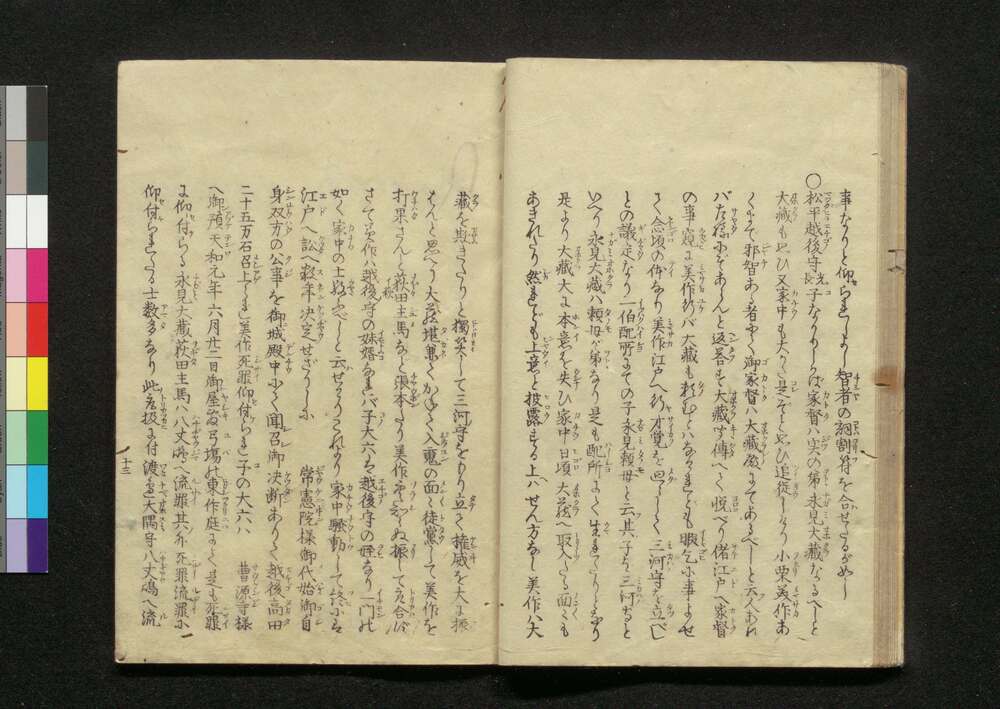 事なりと仰られしより智者の詞割符を合せたるがめし
〇松平越後守光長子なかりしかば家督ハ実の弟永見大蔵なるべしと
大蔵もおもひ又家中も大かた是ぞとおもひ追従しけり小栗美作あ
くまで邪智ある者にて御家督ハ大蔵殿にてあるべしと云人あれ
バた左にぞあらんと返答も大蔵聞傳へて悦べり偖江戸へ家督
の事窺に美作行バ大蔵も行むとハなけれども暇乞に事よせ
て念頃の体なり美作江戸へ行才覚を廻らして三河守を立べし
との議定なり一伯配所にての子永見頼母と云其子を三河守と
いへり永見大蔵ハ頼母が弟なり是も配所にて生れたりしなり
是より大蔵大に本意を失ひ家中日頃大蔵へ取入たる面〻も
あきれたり然れども上意と披露する上ハせん方なし美作ハ大
蔵を欺きたりと獨笑して三河守をもり立て権威を大に振
はんと思へり大蔵堪兼てかねて入魂の面〻徒党して美作を
打果さんと荻田主馬など張本たり美作
さて美作ハ越後守の妹婿なれバ子大六ハ越後守の姪なり一門の
如く家中の士
江戸へ訟へ数年決定せざりしに　常憲院様御代始御自
身双方の公事を御城殿中にて聞召御決断ありて越後高田
二十五万石召上られ美作死罪仰付られ子の大六ハ　曹源寺様
へ御預天和元年六月廿二日御屋敷弓場の東作庭にて是も死罪
に仰付らる永見大蔵荻田主馬ハ八丈嶋へ流罪其外死罪流罪に
仰付られたる士数多なり此差扱に付渡邊大隅守八丈嶋へ流
十三